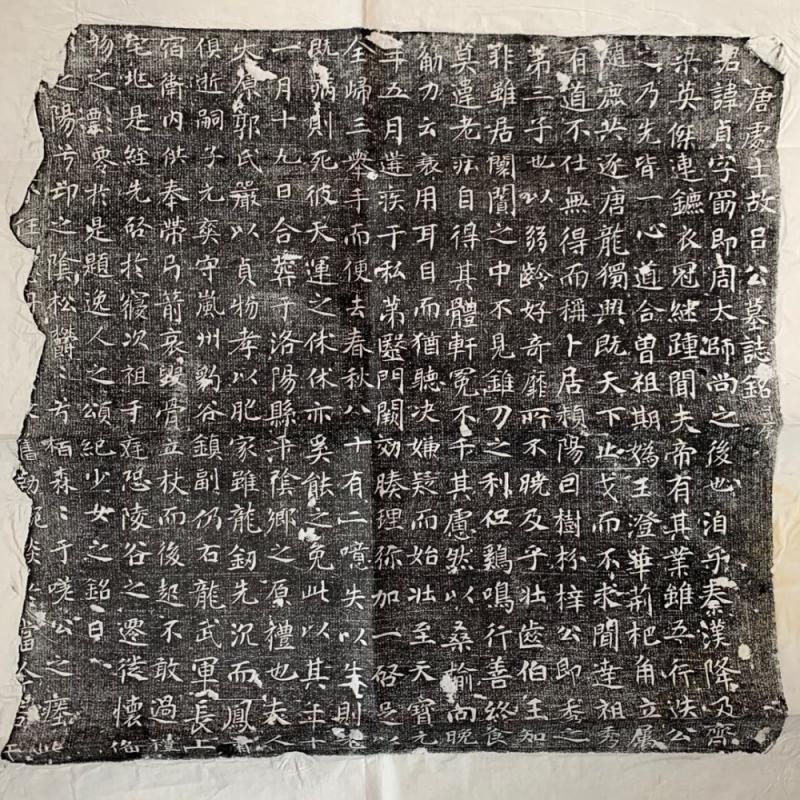 唐處士故呂公墓誌銘并序
君諱貞字罰即周太師尚之後也洎乎秦漢降及齊
梁英傑連鑣衣冠継踵聞夫帝有其業雖五行迭公
之乃先皆一心道合曾祖期嬌王澄華荊杞角立屬
隨鹿共逐唐龍獨興既天下止戈而不求聞達祖秀
有道不仕無得而稱卜居潁陽因樹枌梓公即秀之
第三子也以弱齡好奇靡所不曉及乎壯齒伯玉知
非雖居闤闠之中不見錐刀之利但雞鳴行善終食
莫違老疾自得其體軒冕不干其慮然以桑榆向晚
觔力云衰用耳目而猶聽決嫌疑而始壯至天寶元
年五月遘疾于私第醫門闕効腠理弥加一啓足以
全歸三舉手而便去春秋八十有二噫失以生則老
既病則死彼天運之休休亦奚能之免此以其年十
一月十九日合葬于洛陽縣平陰鄉之原禮也夫人
太原郭氏嚴以貞物孝以肥家雖龍釼先沉而鳳
俱逝嗣子元奕守嵐州豹谷鎮副仍右龍武軍長上
宿衛內供奉帶弓箭哀毀骨立杖而後起不敢過
宅兆是経先啓於寢次祖于庭恐陵谷之遷徙懷
物之零於是題逸人之頌紀少女之銘曰
之陽兮邙之陰松欝欝兮栢森森于嗟公之